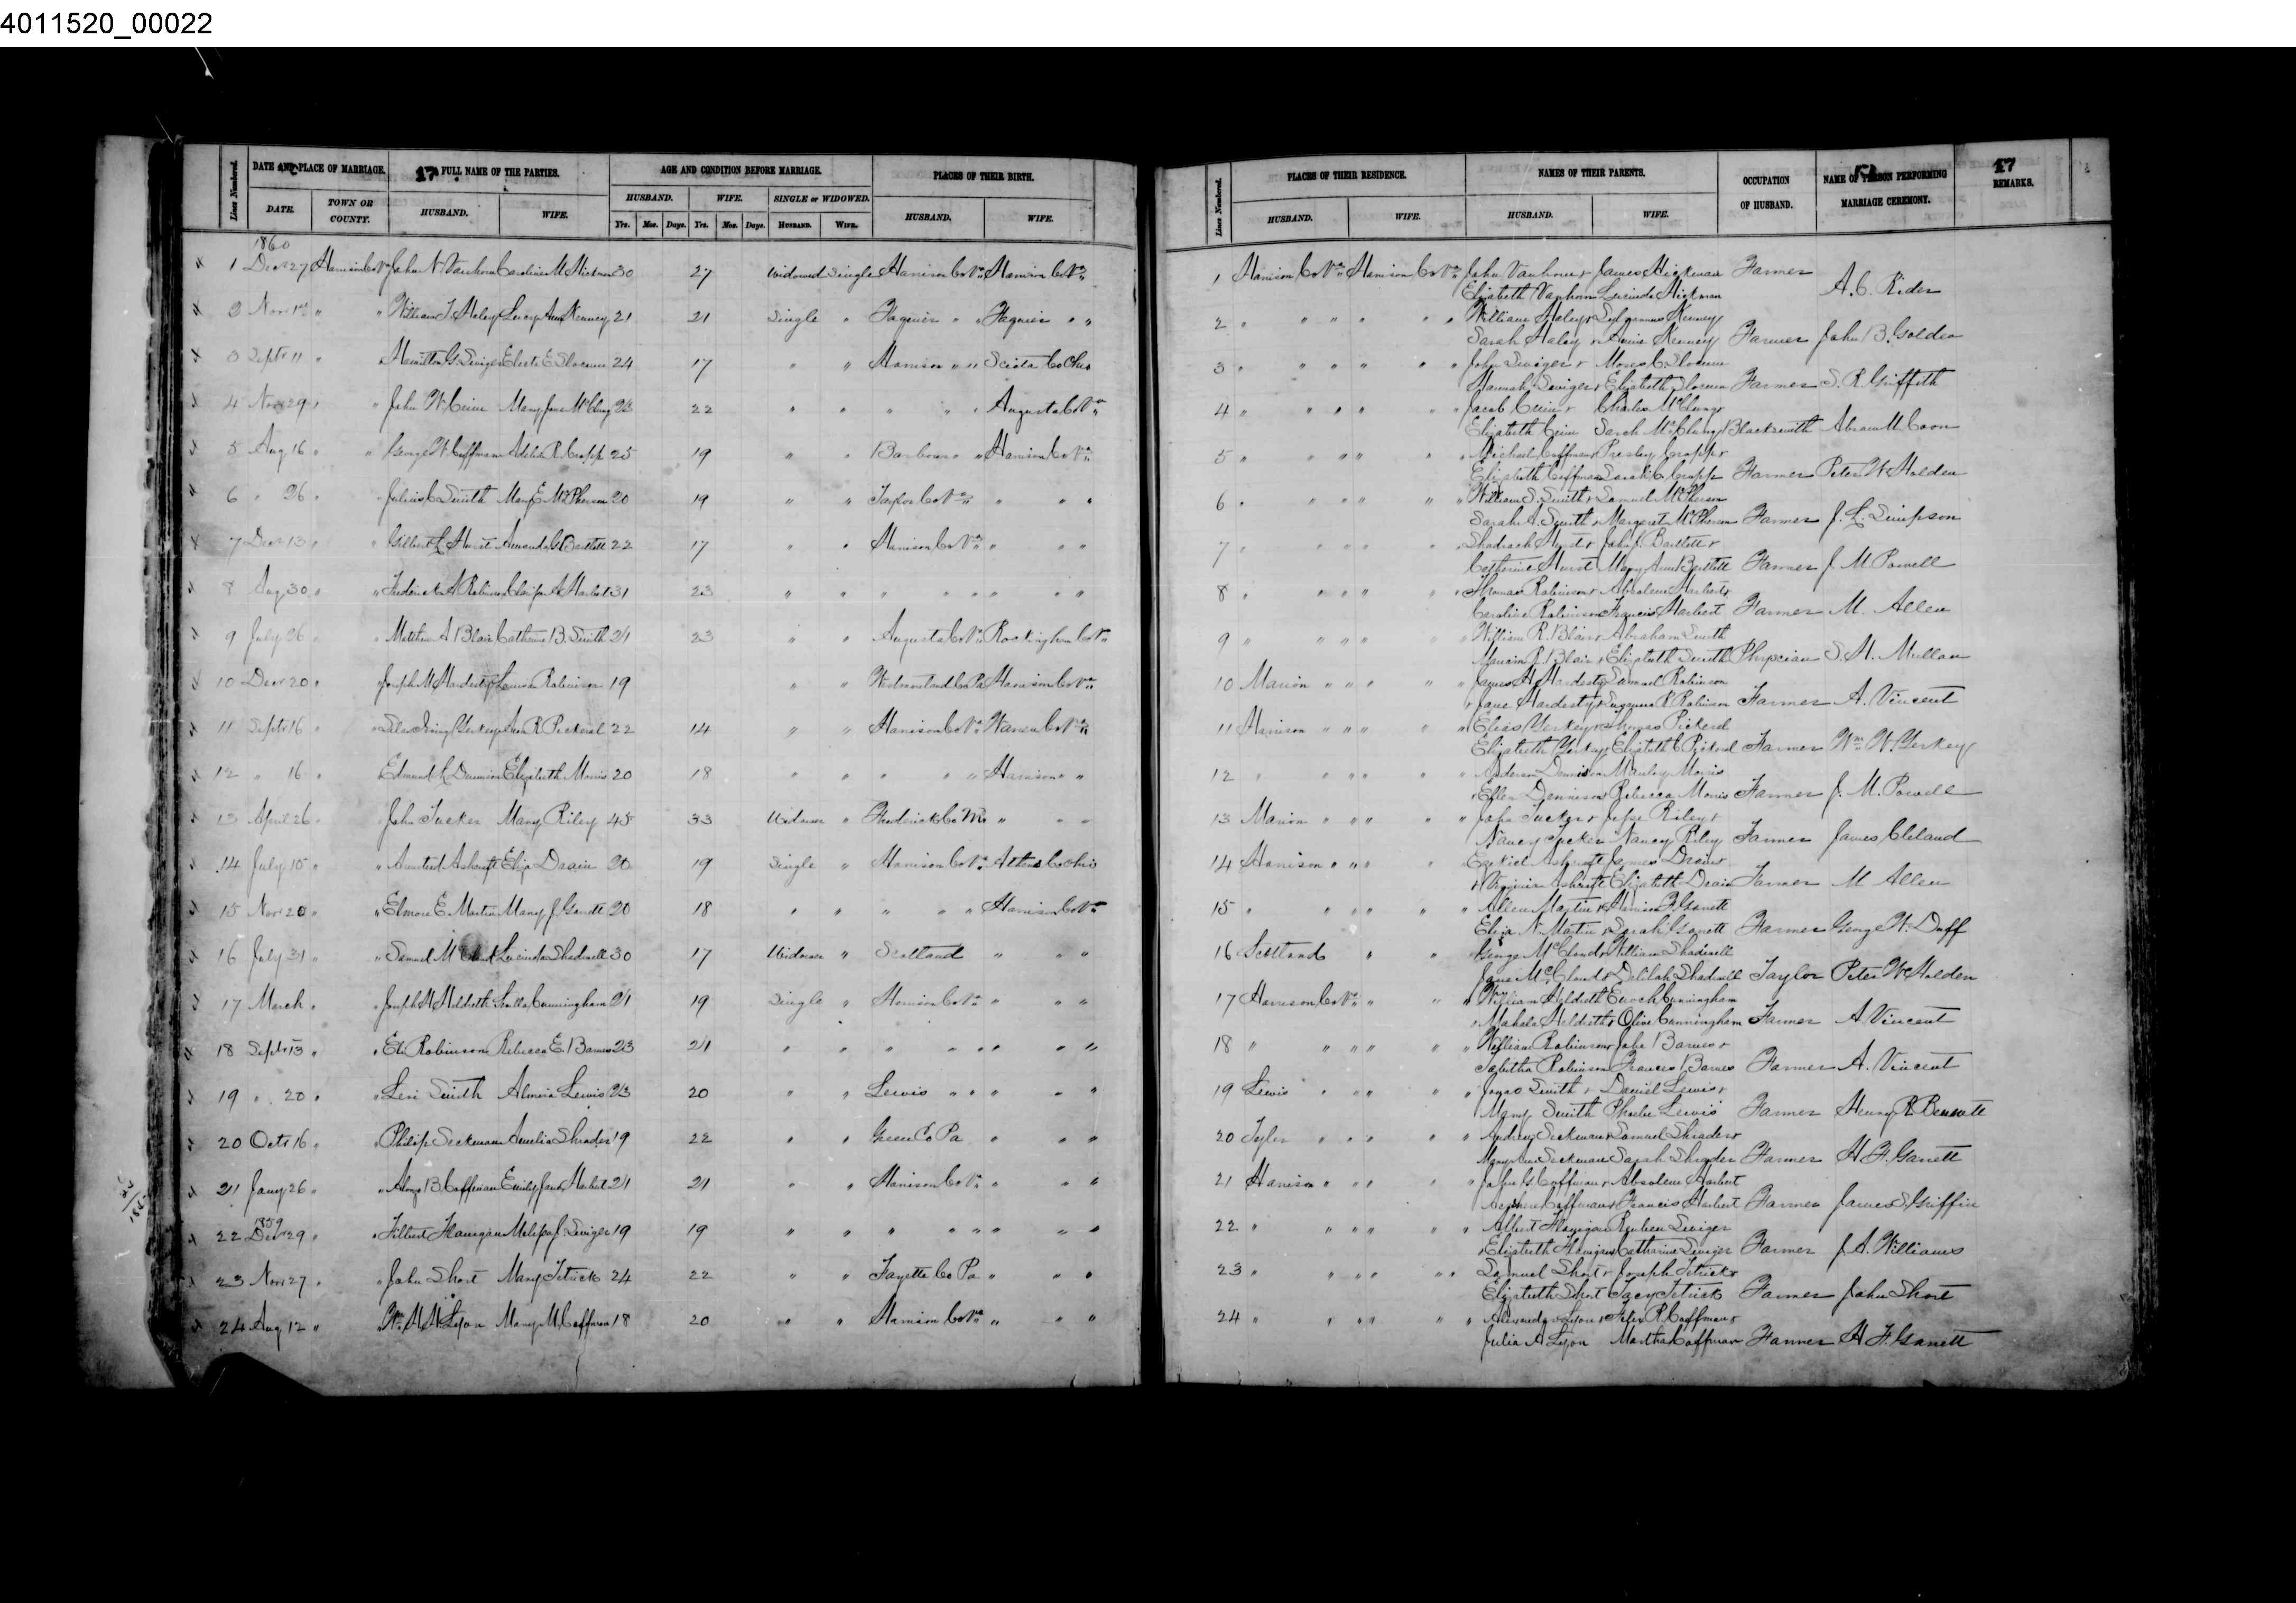 4011520_00022
17
DATE AND PLACE OF MARRIAGE. FULL NAME OF THE PARTIES. AGE AND CONDITION BEFORE MARRIAGE. PLACES OF THEIR BIRTH.
Lines Numbered. DATE. TOWN OR COUNTY. HUSBAND. WIFE. HUSBAND. WIFE. SINGLE or WIDOWED. HUSBAND. WIFE.
Yrs. Mos. Days. Yrs. Mos. Days. HUSBAND. WIFE.
1860
1 Decr 27 Harrison Co Va John N. Vanhorn Caroline M Hickman 30 27 Widowed Single Harrison Co Va Harrison Co Va
2 Novr " " William T. Haley Lucy Ann Kenney 21 21 Single " Faquier " " Faquier " "
3 Septr 11 " Hamilton G. Swiger Electa E Slocum 24 17 " " Harrison " " Sciota Co Ohio
4 Novr 29 " " John W. Mary Jane McClung 22 " " " " " Augusta Co Va
5 Aug 16 " " George W. Coffman R. Cropp 25 19 " " Barbour " " Harrison Co Va
6 " 26 " " Julius C Smith Mary E. McPherson 20 19 " " Taylor Co Va " " "
7 Decr 13 " " Gilbert L Hurst Amanda Bartlett 22 17 " " Harrison Co Va " " "
8 Aug 30 " " Frederick A Robinson Harbert 31 23 " " " " " " " "
9 July 26 " " A Blair Catherine B. Smith 21 23 " " Augusta Co Va Rockingham Co Va
10 Decr 20 " " Joseph M Hardesty Robinson 19 " " Westmoreland Co Pa Harrison Co Va
11 Septr 16 " " Silas Yerkey Ann R Pickeral 22 14 " " Harrison Co Va Warren Co Va
12 " 16 " Edmund Dennison Elizabeth Morris 20 18 " " " " " Harrison " "
13 April 26 " " John Tucker Mary Riley 45 33 Widower " Frederick Co Md " " "
14 July 15 " " Ashcraft Eliza Drain 20 19 Single " Harrison Co Va Athens Co Ohio
15 Nov 20 " " Elmore E. Martin Mary J. 20 18 " " " " " Harrison Co Va
16 July 31 " " Samuel Lucinda Shadwell 30 17 Widower " Scotland " " "
17 March " " Joseph M Hildreth Cunningham 21 19 Single " Harrison Co Va " " "
18 Septr 13 " " Eli Robinson Rebecca E. Barnes 23 21 " " " " " " " "
19 " 20 " " Levi Smith Almira Lewis 23 20 " " Lewis " " " " "
20 Octr 16 " " Philip Seckman Amelia Shrader 19 22 " " Green Co Pa " " "
21 Jany 26 " " B. Coffman Emily Jane Harbert 21 21 " " Harrison Co Va " " "
1859
22 Decr 29 " " Flanigan Melissa J. Swiger 19 19 " " " " " " " "
23 Novr 27 " " John Short Mary Tetrick 24 22 " " Fayette Co Pa " " "
24 Aug 12 " " Wm. Lyon Mary M Coffman 18 20 " " Harrison Co Va " " "
17
PLACES OF THEIR RESIDENCE. NAMES OF THEIR PARENTS. OCCUPATION OF HUSBAND. NAME OF PERSON PERFORMING MARRIAGE CEREMONY. REMARKS.
Lines Numbered. HUSBAND. WIFE. HUSBAND. WIFE.
1 Harrison Co Va Harrison Co Va John Vanhorn & James Hickman Farmer
Elizabeth Vanhorn Lucinda Hickman A. C. Rider
2 " " " " " " William Haley & Kenney
Sarah Haley Kenney Farmer John B. Golden
3 " " " " " " John Swiger & Moses C Slocum
Hannah Swiger & Elizabeth Slocum Farmer S. R. Griffith
4 " " " " " " Jacob & Charles McClung
Elizabeth Sarah McClung Blacksmith Abram M. Coon
5 " " " " " " Michael Coffman Presley Cropp &
Elizabeth Coffman Sarah C. Cropp Farmer Peter W Holden
6 " " " " " " William S. Smith & Samuel McPherson
Sarah A. Smith & Margaret McPherson Farmer J. L. Simpson
7 " " " " " " Shadrach Hurst & John J. Bartlett &
Catherine Hurst Mary Ann Bartlett Farmer J. M. Powell
8 " " " " " " Thomas Robinson & Absolem Harbert
Caroline Robinson Francis Harbert Farmer M. Allen
9 " " " " " " William R. Blair & Abraham Smith
Blair & Elizabeth Smith Physcian S. H. Mullan
10 Marion " " " " " James H Hardesty Samuel Robinson
& Jane Hardesty R Robinson Farmer A. Vincent
11 Harrison " " " " " Elias Yerkey & Thomas Pickerel
Elizabeth Yerkey Elizabeth C Pickerel Farmer Wm W. Yerkey
12 " " " " " " Anderson Dennison Manley Morris
& Ellen Dennison Rebecca Morris Farmer J. M. Powell
13 Marion " " " " " John Tucker & Jesse Riley &
Nancy Tucker Nancy Riley Farmer James Cleland
14 Harrison " " " " Ezekiel Ashcraft James Drain
& Virginia Ashcraft Elizabeth Drain Farmer M Allen
15 " " " " " " Allen Martin &
Eliza N. Martin & Sarah Farmer George W. Duff
16 Scotland " " " George McCloud & William Shadwell
Jane McCloud & Delilah Shadwell Taylor Peter W Holden
17 Harrison Co Va " " " William Hildreth Enoch Cunningham
& Mahala Hildreth & Olive Cunningham Farmer A. Vincent
18 " " " " " " William Robinson & John Barnes &
Tabitha Robinson Frances Barnes Farmer A. Vincent
19 Lewis " " " " " Smith & Daniel Lewis &
Mary Smith Phoebe Lewis Farmer Henry R. Bennett
20 Tyler " " " " " Andrew Seckman & Samuel Shrader &
Mary Ann Seckman Sarah Shrader Farmer H. F. Garrett
21 Harrison " " " " " John G. Coffman & Absolem Harbert
Coffman & Francis Harbert Farmer James S. Griffin
22 " " " " " " Albert Flanigan Reuben Swiger
& Elizabeth Flanigan Catharine Swiger Farmer J. A. Williams
23 " " " " " " Samuel Short & Joseph Tetrick &
Elizabeth Short Tetrick Farmer John Short
24 " " " " " " Lyon & Peter R. Coffman &
Julia A Lyon Martha Coffman Farmer H. F. Garrett